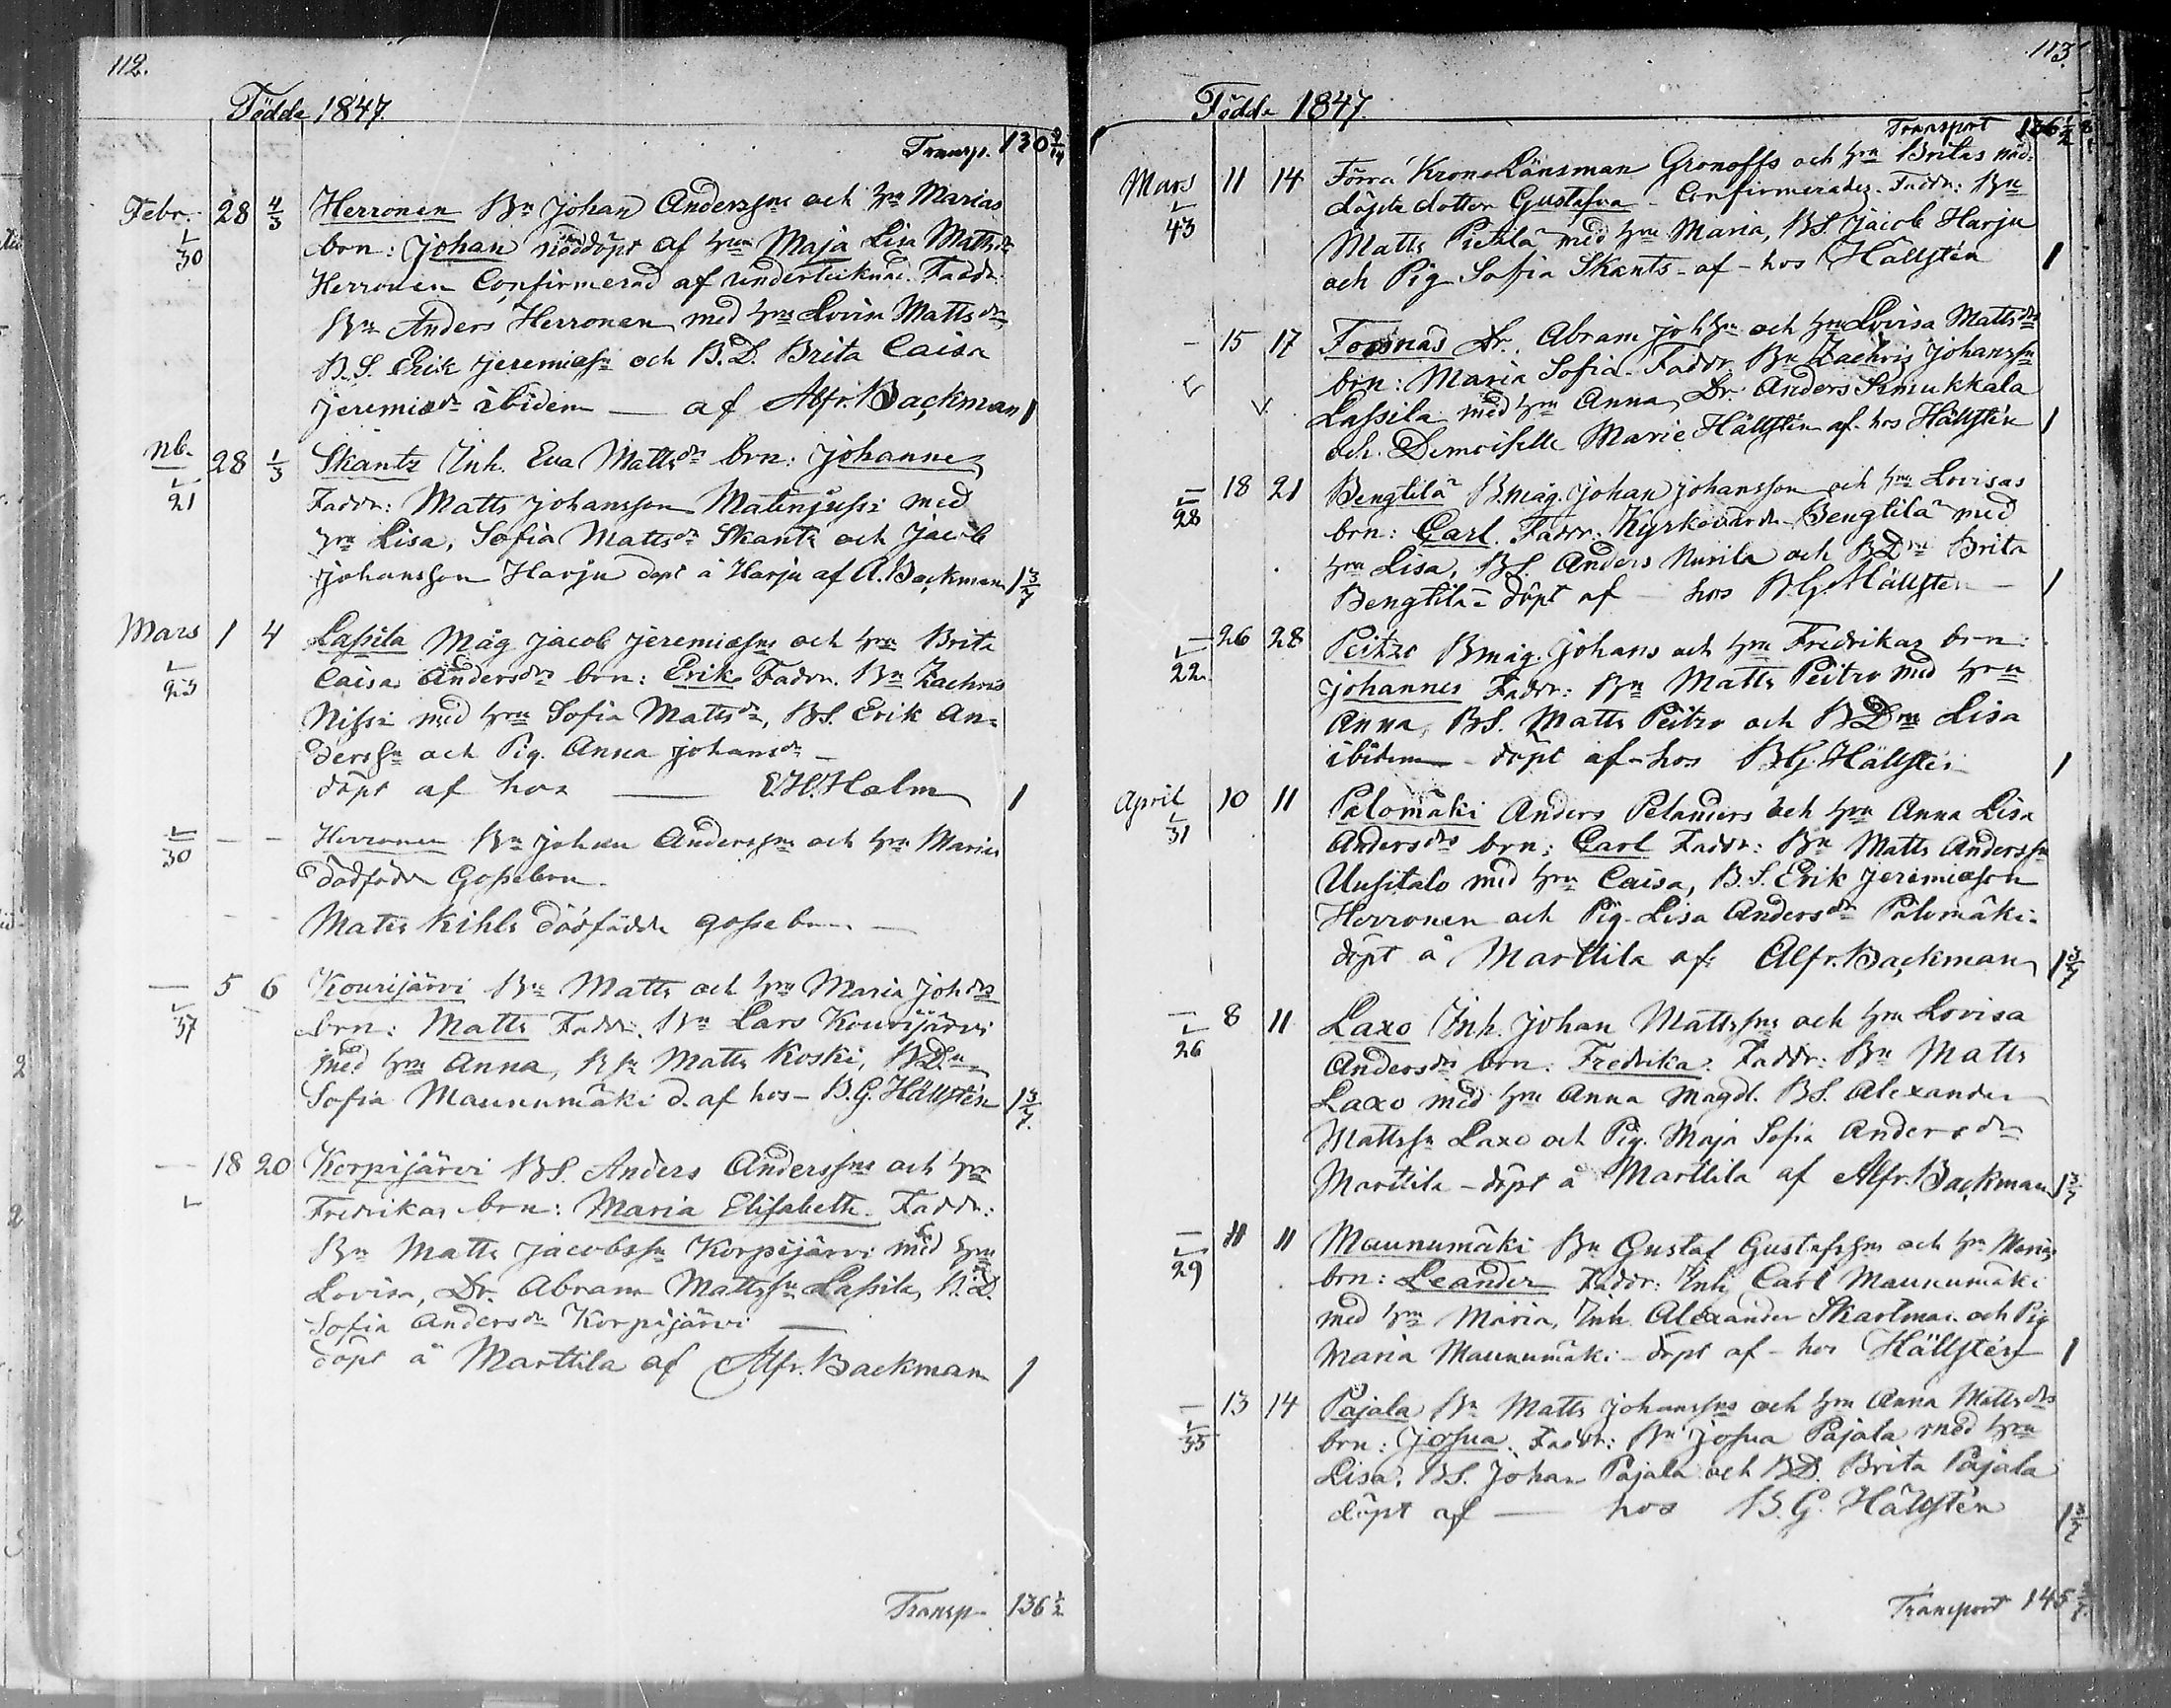 112.
Födde 1847.
Transp. 130 9/14
Febr. 28 4/3 Herronen Bn Johan Anderssns och hru Marias
30 brn: Johan nöddöpt af hru Maja Lisa Mattsdr
Herronen Confirmerad af undertecknad. Faddr:
Bn Anders Herronen med hru Lovisa Mattsdr,
B.S. Erik Jeremiæsn och B.D. Brita Caisa
Jeremiædr ibidem — af Alfr. Backman 1
nb. 28 1/3 Skantz Inh. Eva Mattsdrs brn: Johannes
21 Faddr: Matts Johansson Matinjussi med
hru Lisa, Sofia Mattsdr Skantz och Jacob
Johansson Harju döpt å Harju af A. Backman 1 3/7
Mars 1 4 Lassila Måg Jacob Jeremiæsns och hru Brita
Caisa Andersdrs brn: Erik Faddr. Bn Zachris
Nissi med hru Sofia Mattsdr, BS. Erik An-
derssn och Pig. Anna Johansdr —
döpt af hos — E.H. Holm 1
30 — — Herronen Bn Johan Anderssns och hru Marias
dödfödda Gossebarn.
- - Matts Kihls dödfödda gossebrn —
— 5 6 Kourijärvi Bn Matts och hru Maria Johdrs
37 brn: Matts Faddr. Bn Lars Kourijärvi
med hru Anna, BSn Matts Koski, BDn
Sofia Maunumäki d. af hos — B.G. Hällstén 1 3/7.
— 18 20 Korpijärvi BS. Anders Anderssns och hru
Fredrikas brn: Maria Elisabeth. Faddr:
Bn Matts Jacobssn Korpijärvi med hru
Lovisa, Dr. Abram Mattssn Lassila, B.D.
Sofia Andersdr Korpijärvi —
döpt å Marttila af Alfr. Backman 1
Transp. 136 1/2
113.
Födde 1847.
Transport 136 1/2
Mars 11 14 Förra Krono Länsman Gronoffs och hru Britas nöd-
43 döpta dotter Gustafva - Confirmerades. Faddr: Bn
Matts Pietilä med hru Maria, BS. Jacob Harju
och Pig Sofia Skants - af - hos Hällstén 1
— 15 17 Forsnäs Dr. Abram Johsn och hru Lovisa Mattsdrs
brn: Maria Sofia. Faddr. Bn Zachris Johanssn
Lassila med hru Anna, Dr. Anders Kimukkala
och Demoiselle Marie Hällstén af hos Hällstén 1
— 18 21 Bengtilä B.måg. Johan Johansson och hru Lovisas
28 brn: Carl. Faddr: Kyrkovärdn Bengtilä med
hru Lisa, BS. Anders Nurila och BDrn Brita
Bengtilä döpt af — hos B.G. Hällstén — 1
— 26 28 Peitzo Bmåg. Johans och hru Fredrikas brn:
22. Johannes Faddr: Bn Matts Peitzo med hru
Anna, BS. Matts Peitzo och BDrn Lisa
ibidem — döpt af — hos B.G. Hällstén 1
April 10 11 Palomäki Anders Pelanders och hru Anna Lisa
31 Andersdrs brn: Carl Faddr: Bn Matts Anderssn
Uusitalo med hru Caisa, B.S. Erik Jeremiæson
Herronen och Pig. Lisa Andersdr Palomäki.
döpt å Marttila af: Alfr. Backman 1 3/7
— 8 11 Laxo Inh. Johan Mattssns och hru Lovisa
26 Andersdrs brn: Fredrika. Faddr: Bn Matts
Laxo med hru Anna Magdl. BS. Alexander
Mattssn Laxo och Pig. Maja Sofia Andersdr
Marttila — döpt å Marttila af Alfr. Backman 1 3/7
— 11 11 Maunumäki Bn Gustaf Gustafssns och hru Marias
29 brn: Leander Faddr: Inh. Carl Maunumäki
med hru Maria, Inh. Alexander Skartman och Pig
Maria Maunumäki — döpt af — hos Hällstén 1
— 13 14 Pajala Bn Matts Johanssns och hru Anna Mattsdrs
35 brn: Josua. Faddr: Bn Josua Pajala med hru
Lisa, BS. Johan Pajala och BD. Brita Pajala
döpt af — hos B.G. Hällstén 1 3/7
Transport 145